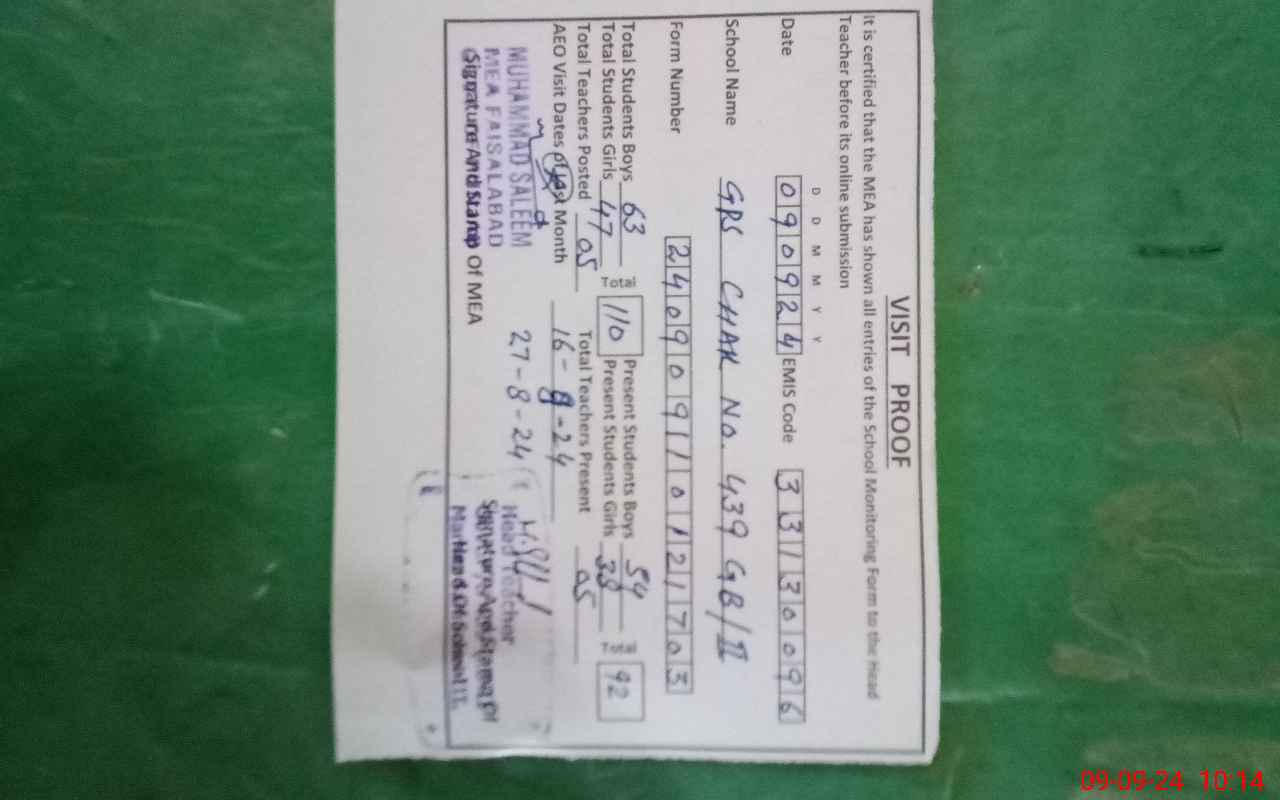 VISIT PROOF
It is certified that the MEA has shown all entries of the School Monitoring Form to the Head
Teacher before its online submission
D D M M Y Y
Date 090924 EMIS Code 33130096
School Name GPS CHAK NO. 439 GB/II
Form Number 240909110121703
Total Students Boys 63 Total 110 Present Students Boys 54 Total 92
Total Students Girls 47 Present Students Girls 38
Total Teachers Posted 05 Total Teachers Present 05
AEO Visit Dates of Last Month 16-8-24
27-8-24
MUHAMMAD SALEEM
MEA FAISALABAD
Signature And Stamp Of MEA
Head Teacher
Signature And Stamp Of
Head Of School
09-09-24 10:14